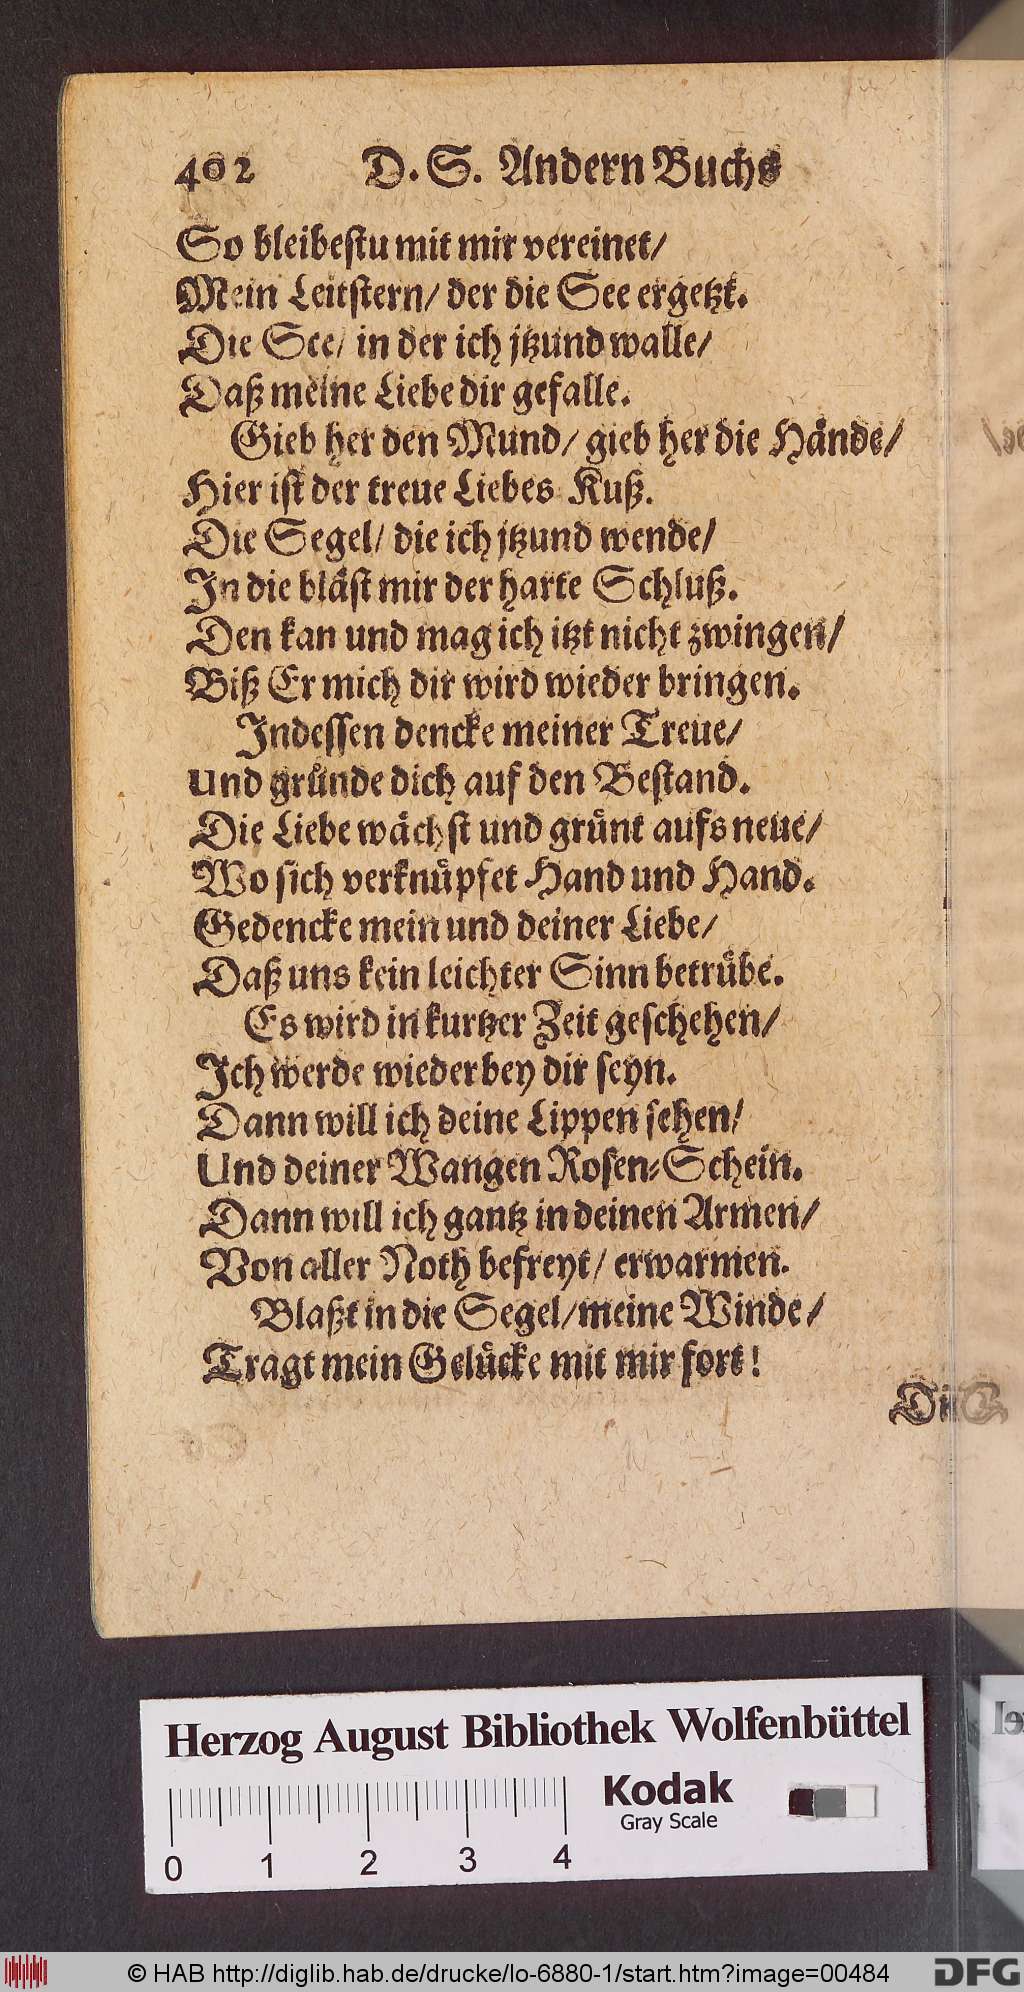 402 D. S. Andern Buchs
So bleibestu mit mir vereinet/
Mein Leitstern/ der die See ergetzt.
Die See/ in der ich jtzund walle/
Daß meine Liebe dir gefalle.
Gieb her den Mund/ gieb her die Hände/
Hier ist der treue Liebes Kuß.
Die Segel/ die ich jtzund wende/
In die bläst mir der harte Schluß.
Den kan und mag ich itzt nicht zwingen/
Biß Er mich dir wird wieder bringen.
Indessen dencke meiner Treue/
Und gründe dich auf den Bestand.
Die Liebe wächst und grünt aufs neue/
Wo sich verknüpfet Hand und Hand.
Gedencke mein und deiner Liebe/
Daß uns kein leichter Sinn betrübe.
Es wird in kurtzer Zeit geschehen/
Ich werde wieder bey dir seyn.
Dann will ich deine Lippen sehen/
Und deiner Wangen Rosen-Schein.
Dann will ich gantz in deinen Armen/
Von aller Noth befreyt/ erwarmen.
Blaßt in die Segel/ meine Winde/
Tragt mein Gelücke mit mir fort!
Herzog August Bibliothek Wolfenbüttel
Kodak
Gray Scale
0 1 2 3 4
© HAB http://diglib.hab.de/drucke/lo-6880-1/start.htm?image=00484
DFG